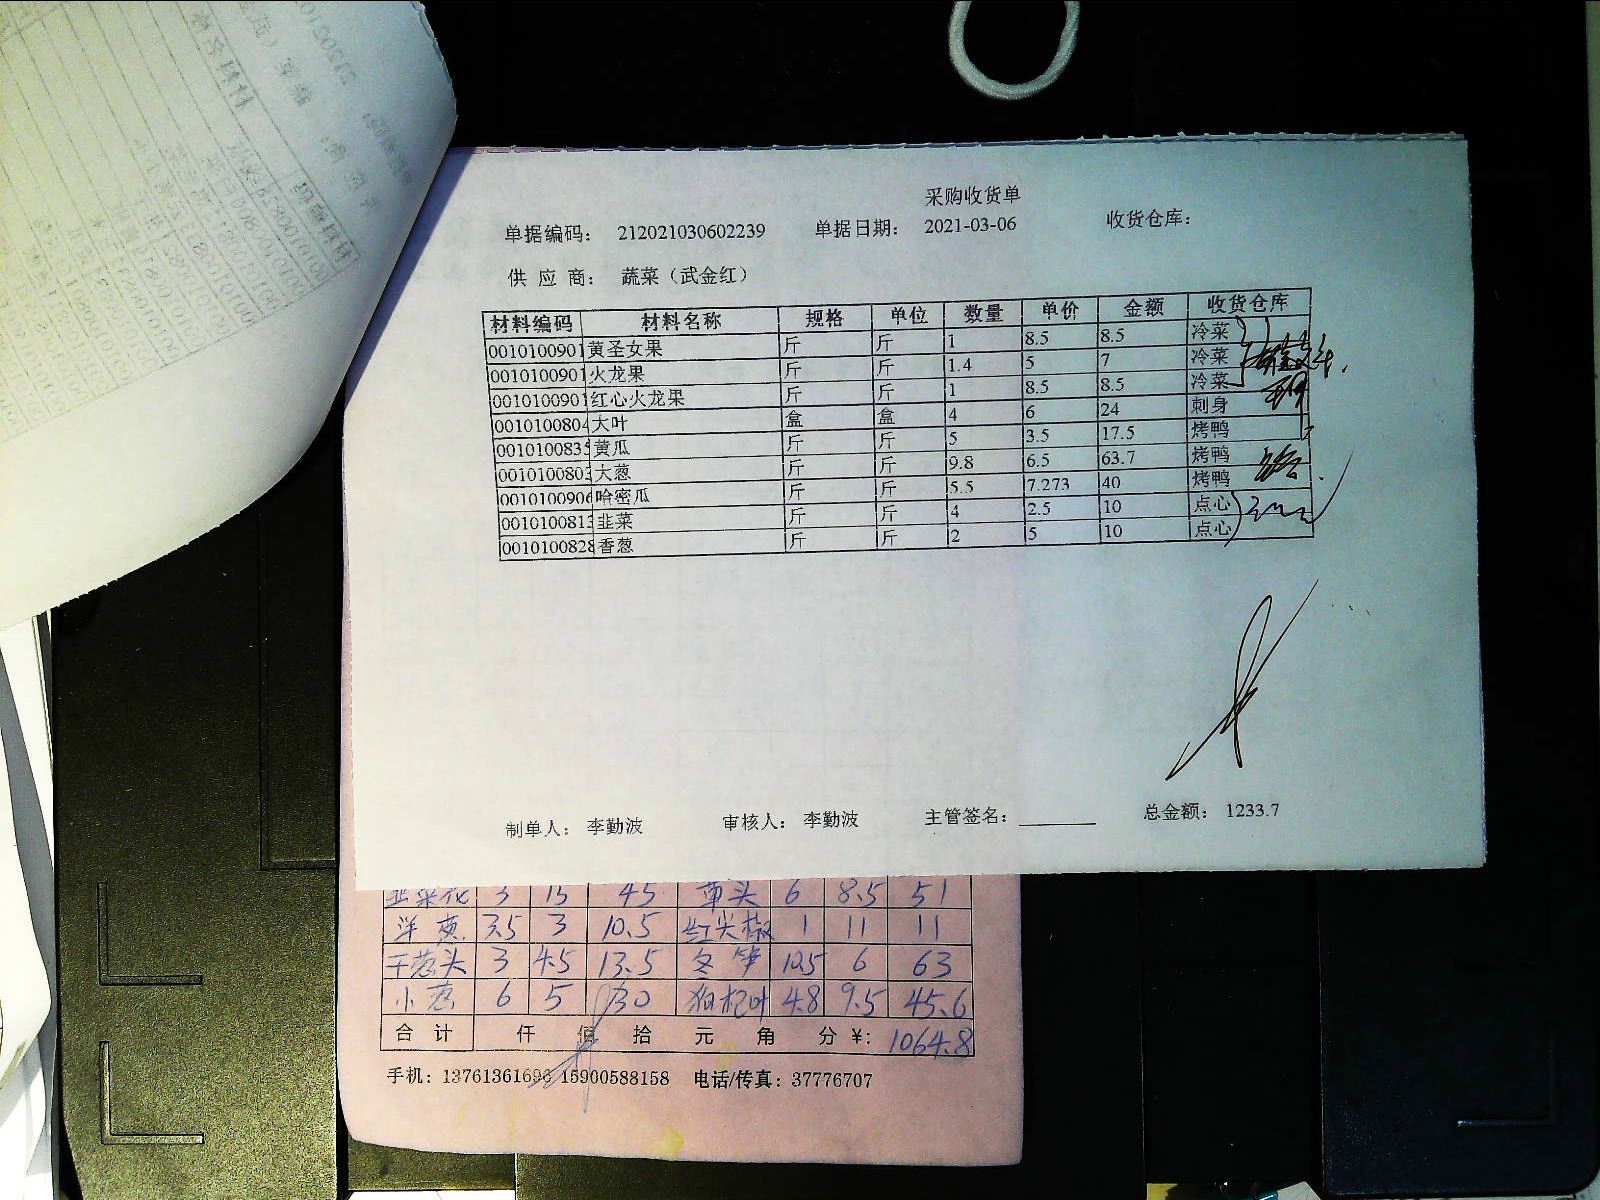 采购收货单
单据编码： 212021030602239 单据日期： 2021-03-06 收货仓库：
供 应 商： 蔬菜（武金红）
材料编码 材料名称 规格 单位 数量 单价 金额 收货仓库
0010100901 黄圣女果 斤 斤 1 8.5 8.5 冷菜
0010100901 火龙果 斤 斤 1.4 5 7 冷菜
0010100901 红心火龙果 斤 斤 1 8.5 8.5 冷菜
0010100804 大叶 盒 盒 4 6 24 刺身
0010100835 黄瓜 斤 斤 5 3.5 17.5 烤鸭
0010100803 大葱 斤 斤 9.8 6.5 63.7 烤鸭
0010100906 哈密瓜 斤 斤 5.5 7.273 40 烤鸭
0010100813 韭菜 斤 斤 4 2.5 10 点心
0010100828 香葱 斤 斤 2 5 10 点心
制单人： 李勤波 审核人： 李勤波 主管签名： 总金额： 1233.7
韭菜花 3 15 45 草头 6 8.5 51
洋葱 3.5 3 10.5 红尖椒 1 11 11
干葱头 3 4.5 13.5 冬笋 10.5 6 63
小葱 6 5 30 枸杞叶 4.8 9.5 45.6
合计 仟 佰 拾 元 角 分 ¥: 1064.8
手机：13761361696 15900588158 电话/传真：37776707